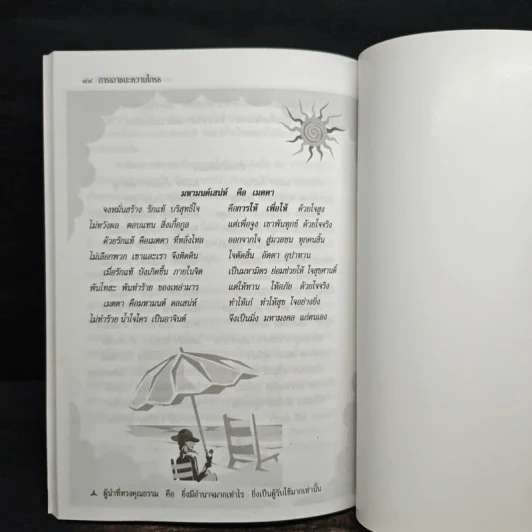 ๗๔ การเอาชนะความโกรธ
มหามนต์เสน่ห์ คือ เมตตา
จงหมั่นสร้าง รักแท้ บริสุทธิ์ใจ คือการให้ เพื่อให้ ด้วยใจสูง
ไม่หวังผล ตอบแทน สิ่งเกื้อกูล แต่เพื่อจูง เขาพ้นทุกข์ ด้วยใจจริง
ด้วยรักแท้ คือเมตตา ที่หลั่งไหล ออกจากใจ สู่มวลชน ทุกคนสิ้น
ไม่เลือกพวก เขาและเรา จึงติดดิน ใจตัดสิ้น อัตตา อุปาทาน
เมื่อรักแท้ บังเกิดขึ้น ภายในจิต เป็นมหามิตร ย่อมช่วยให้ ใจสุขศานติ์
พ้นโทสะ พ้นทำร้าย ของเหล่ามาร แต่ให้ทาน ให้อภัย ด้วยใจจริง
เมตตา คือมหามนต์ ดลเสน่ห์ ทำให้เก๋ ทำให้สุข ใจอย่างยิ่ง
ไม่ทำร้าย น้ำใจใคร เป็นอาจิณต์ จึงเป็นมิ่ง มหามงคล แก่ตนเอง
ผู้นำที่ทรงคุณธรรม คือ ยิ่งมีอำนาจมากเท่าไร ยิ่งเป็นผู้รับใช้มากเท่านั้น